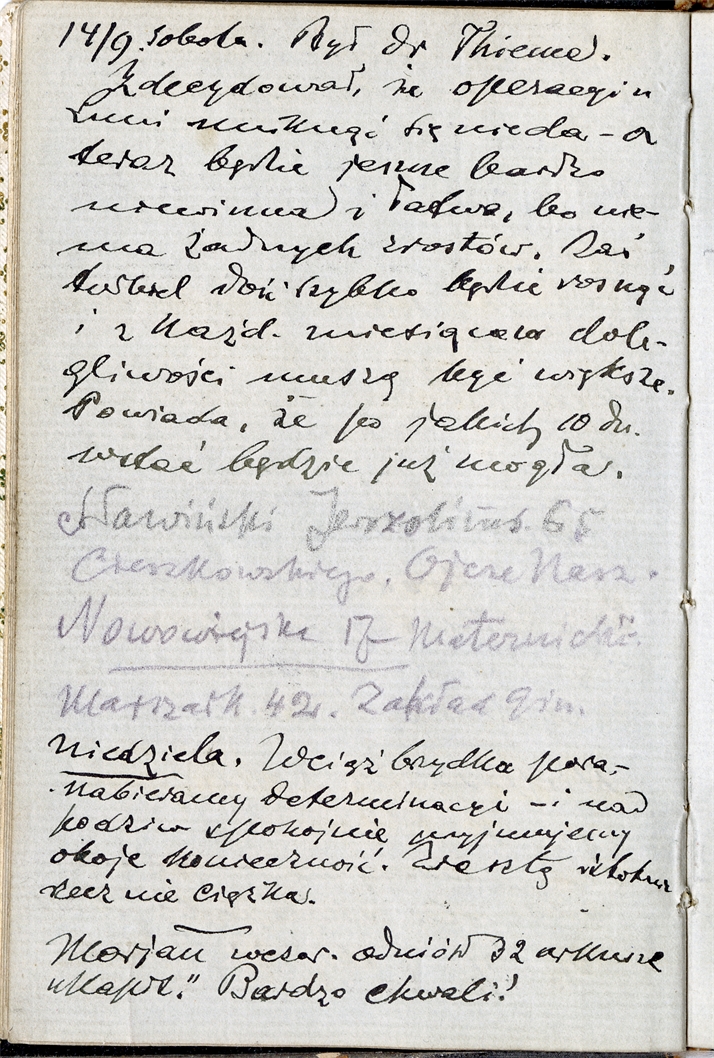 14/9. sobota. Był dr Thieme.
Zdecydował, że operacyi u
Luni uniknąć się nieda – a
teraz będzie jeszcze bardzo
niewinna i łatwa, bo nie-
ma żadnych zrostów. Zaś
dość szybko będzie rosnąć
i z każd. miesiącem dole-
gliwości muszą być większe.
Powiada, że po jakich 10 dn.
wstać będzie już mogła.
Sławiński Jerozolims. 65
Cieszkowskiego. Ojcze Nasz.
Nowowiejska 17 –
Marszałk. 42. Zakład gin.
Niedziela. Wciąż brzydka pora,–
nabieramy determinacyi – i nad
podziw spokojnie przyjmujemy
oboje konieczność. Zresztą istotnie
rzecz nie ciężka.
Marjan wczor. odniósł 32 arkusze
„Kapit." Bardzo chwali!